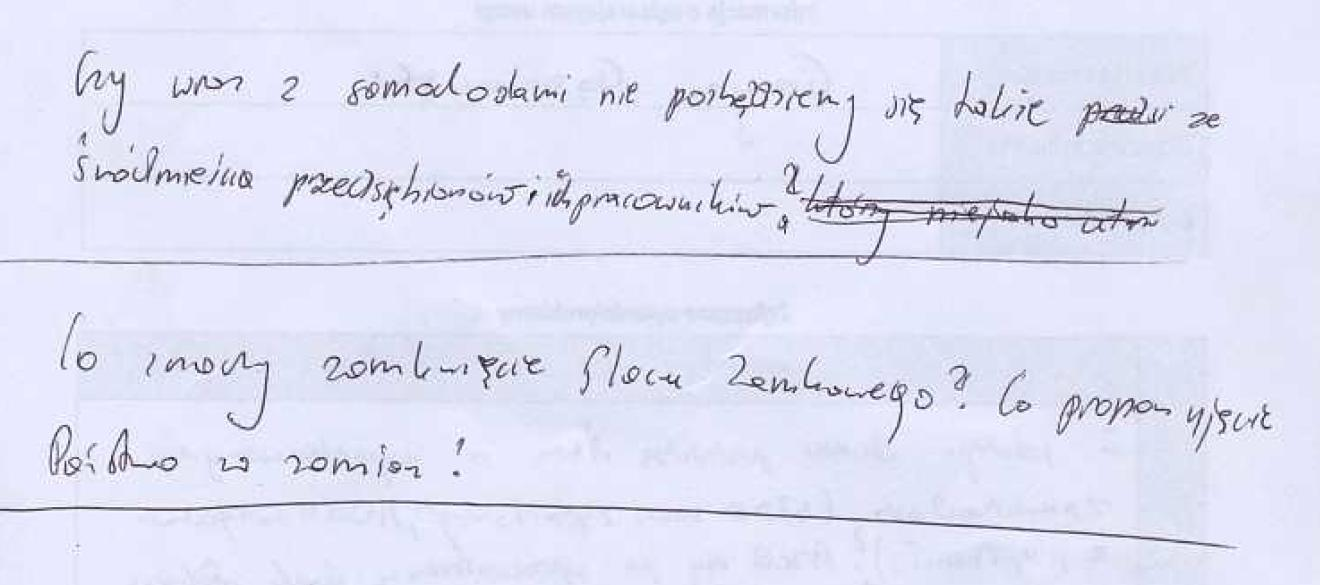 Czy wraz z samochodami nie pozbędziemy się także ze
śródmieścia przedsębiorców i ich pracowników?
Co znaczy zamknięcie Placu Zamkowego? Co proponujecie
Państwo w zamian!